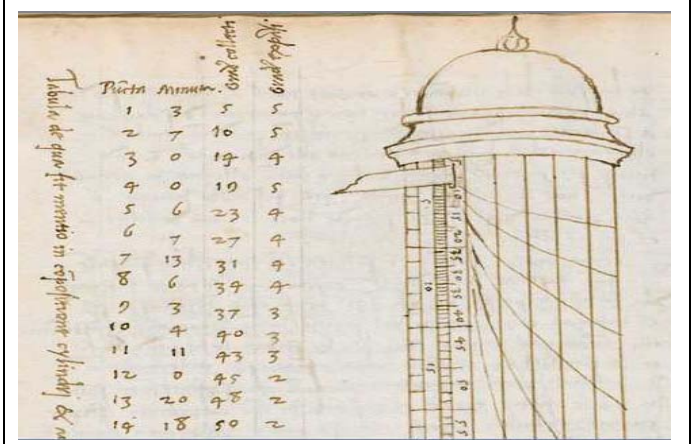 Tabula de qua fit mentio in cõpositione cylindrj &
Pũcta Minuta.
1 3 5 5
2 7 10 5
3 0 14 4
4 0 19 5
5 6 23 4
6 7 27 4
7 13 31 4
8 6 34 4
9 3 37 3
10 4 40 3
11 11 43 3
12 0 45 2
13 20 48 2
14 18 50 2
5
10
15
10
15
20
25
30
35
40
45
50
55